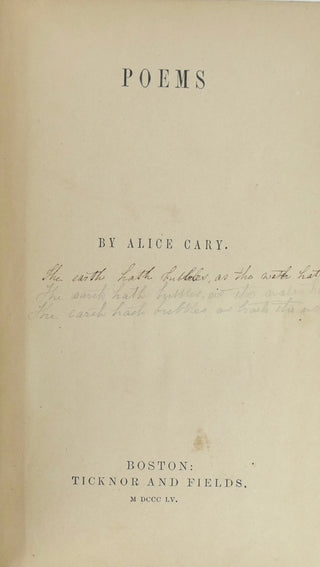 POEMS
BY ALICE CARY.
The earth hath bubbles, as the
The earth hath bubbles, as the water
The earth hath bubbles as hath the
BOSTON:
TICKNOR AND FIELDS.
M DCCC LV.